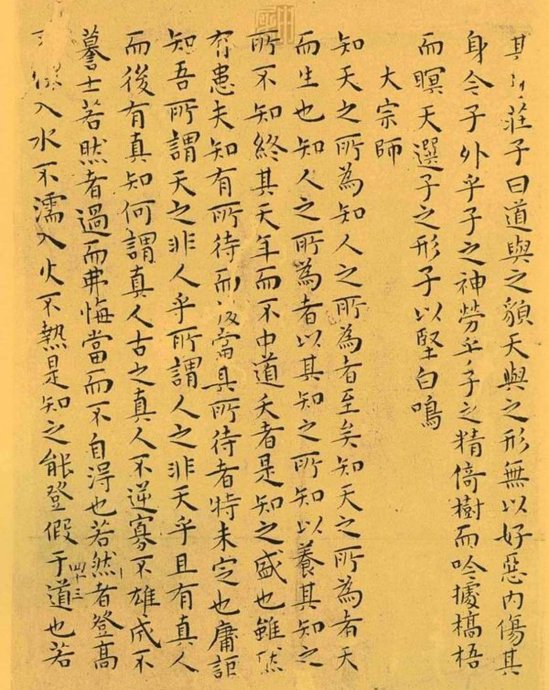 其莊子曰道與之貌天與之形無以好惡內傷其
身今子外乎子之神勞乎子之精倚樹而吟據槁梧
而瞑天選子之形子以堅白鳴
大宗師
知天之所為知人之所為者至矣知天之所為者天
而生也知人之所為者以其知之所知以養其知之
所不知終其天年而不中道夭者是知之盛也雖然
有患夫知有所待而後當其所待者特未定也庸詎
知吾所謂天之非人乎所謂人之非天乎且有真人
而後有真知何謂真人古之真人不逆寡不雄成不
謩士若然者過而弗悔當而不自得也若然者登高
四十三
入水不濡入火不熱是知之能登假于道也若